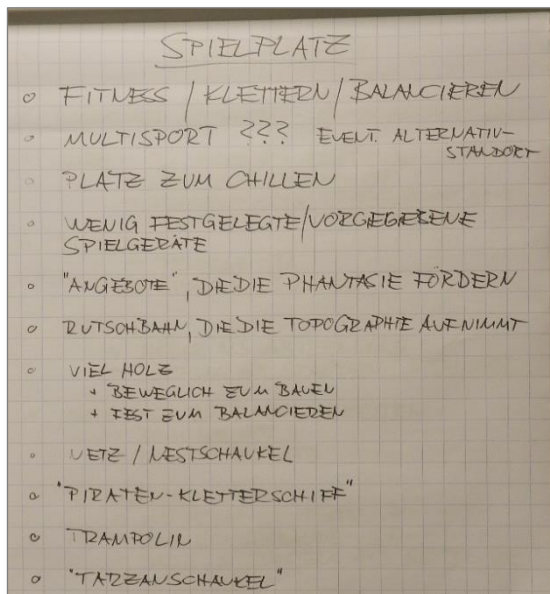 SPIELPLATZ
o FITNESS / KLETTERN / BALANCIEREN
o MULTISPORT ??? EVENT. ALTERNATIV-
STANDORT
o PLATZ ZUM CHILLEN
o WENIG FESTGELEGTE/VORGEGEBENE
SPIELGERÄTE
o "ANGEBOTE", DIE DIE PHANTASIE FÖRDERN
o RUTSCHBAHN, DIE DIE TOPOGRAPHIE AUFNIMMT
o VIEL HOLZ
+ BEWEGLICH ZUM BAUEN
+ FEST ZUM BALANCIEREN
o NETZ / NESTSCHAUKEL
o "PIRATEN-KLETTERSCHIFF"
o TRAMPOLIN
o "TARZANSCHAUKEL"